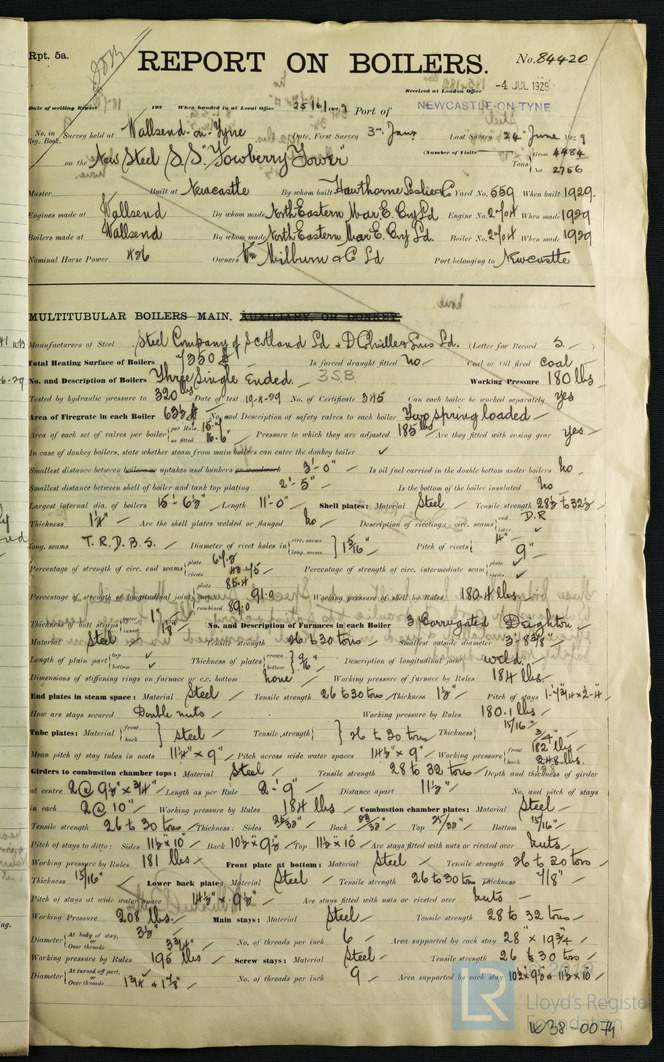 Rpt. 5a.
REPORT ON BOILERS.
No. 84420
Received at London Office -4 JUL 1929
Date of writing Report 192 When handed in at Local Office 25/6/1929 Port of NEWCASTLE-ON-TYNE
No. in Reg. Book. Survey held at Wallsend-on-Tyne Date, First Survey 3rd Jany Last Survey 24 June 1929
on the New Steel S/S "Towberry Tower" (Number of Visits Tons Gross 4484 Net 2756
Master Built at Newcastle By whom built Hawthorne Leslie & Co Yard No. 559 When built 1929.
Engines made at Wallsend By whom made North Eastern Mar. E. Coy Ld Engine No. 2704 When made 1929
Boilers made at Wallsend By whom made North Eastern Mar. E. Coy Ld. Boiler No. 2704 When made 1929
Nominal Horse Power 426 Owners Wm Milburn & Co Ld Port belonging to Newcastle
MULTITUBULAR BOILERS MAIN, AUXILIARY, OR DONKEY.
Manufacturers of Steel Steel Company of Scotland Ld & D Colville & Sons Ld. (Letter for Record S.
Total Heating Surface of Boilers 7350 Is forced draught fitted no Coal or Oil fired coal
No. and Description of Boilers Three Single Ended. 3SB Working Pressure 180 lbs
Tested by hydraulic pressure to 320 lbs Date of test 19-4-29 No. of Certificate 345 Can each boiler be worked separately yes
Area of Firegrate in each Boiler 63½ No. and Description of safety valves to each boiler Two spring loaded
Area of each set of valves per boiler per Rule 15.7 as fitted 16.6 Pressure to which they are adjusted 185 lbs Are they fitted with easing gear yes
In case of donkey boilers, state whether steam from main boilers can enter the donkey boiler ✓
Smallest distance between boilers or uptakes and bunkers or woodwork 3'-0" Is oil fuel carried in the double bottom under boilers no
Smallest distance between shell of boiler and tank top plating 2'-5" Is the bottom of the boiler insulated no
Largest internal dia. of boilers 15'-6½" Length 11'-0" Shell plates: Material Steel Tensile strength 28½ to 32½
Thickness Are the shell plates welded or flanged no Description of riveting: circ. seams end D.R inter. ✓
long. seams T.R.D.B.S. Diameter of rivet holes in circ. seams long. seams 1 5/16" Pitch of rivets 4" 9"
Percentage of strength of circ. end seams plate rivets Percentage of strength of circ. intermediate seam plate ✓ rivets ✓
Percentage of strength of longitudinal joint plate 85.4 rivets 91.0 combined 89.0 Working pressure of shell by Rules 180.4 lbs
Thickness of butt straps outer inner 1⅛" No. and Description of Furnaces in each Boiler 3 Corrugated Deighton
Material Steel Tensile strength 26 to 30 tons Smallest outside diameter 3'-8⅜"
Length of plain part top ✓ bottom ✓ Thickness of plates crown bottom 9/16" Description of longitudinal joint weld.
Dimensions of stiffening rings on furnace or c.c. bottom none Working pressure of furnace by Rules 184 lbs
End plates in steam space: Material Steel Tensile strength 26 to 30 tons Thickness Pitch of stays
How are stays secured Double nuts Working pressure by Rules 180.1 lbs
Tube plates: Material front back Steel Tensile strength 26 to 30 tons Thickness 15/16" 3/4"
Mean pitch of stay tubes in nests 11¼" × 9" Pitch across wide water spaces 14½" × 9" Working pressure front 182 lbs back 248 lbs
Girders to combustion chamber tops: Material Steel Tensile strength 28 to 32 tons Depth and thickness of girder
at centre 2@ 9½" × ¾" Length as per Rule 2'-9" Distance apart 11½" No. and pitch of stays
in each 2@ 10" Working pressure by Rules 184 lbs Combustion chamber plates: Material Steel
Tensile strength 26 to 30 tons Thickness: Sides Back Top Bottom 15/16"
Pitch of stays to ditto: Sides 11½ × 10 Back 10½ × 9½ Top 11½ × 10 Are stays fitted with nuts or riveted over nuts.
Working pressure by Rules 181 lbs Front plate at bottom: Material Steel Tensile strength 26 to 30 tons
Thickness 15/16" Lower back plate: Material Steel Tensile strength 26 to 30 tons Thickness 7/8"
Pitch of stays at wide water space 14½" × 9½" Are stays fitted with nuts or riveted over nuts
Working Pressure 208 lbs. Main stays: Material Steel Tensile strength 28 to 32 tons
Diameter At body of stay, or Over threads 3½" 3¾" No. of threads per inch 6 Area supported by each stay 28" × 19¾"
Working pressure by Rules 195 lbs Screw stays: Material Steel Tensile strength 26 to 30 tons
Diameter At turned off part, or Over threads 1¾ & 1⅞" No. of threads per inch 9 Area supported by each stay 10½ × 9½ & 11½ × 10
LR Lloyd's Register Foundation
W38-0074